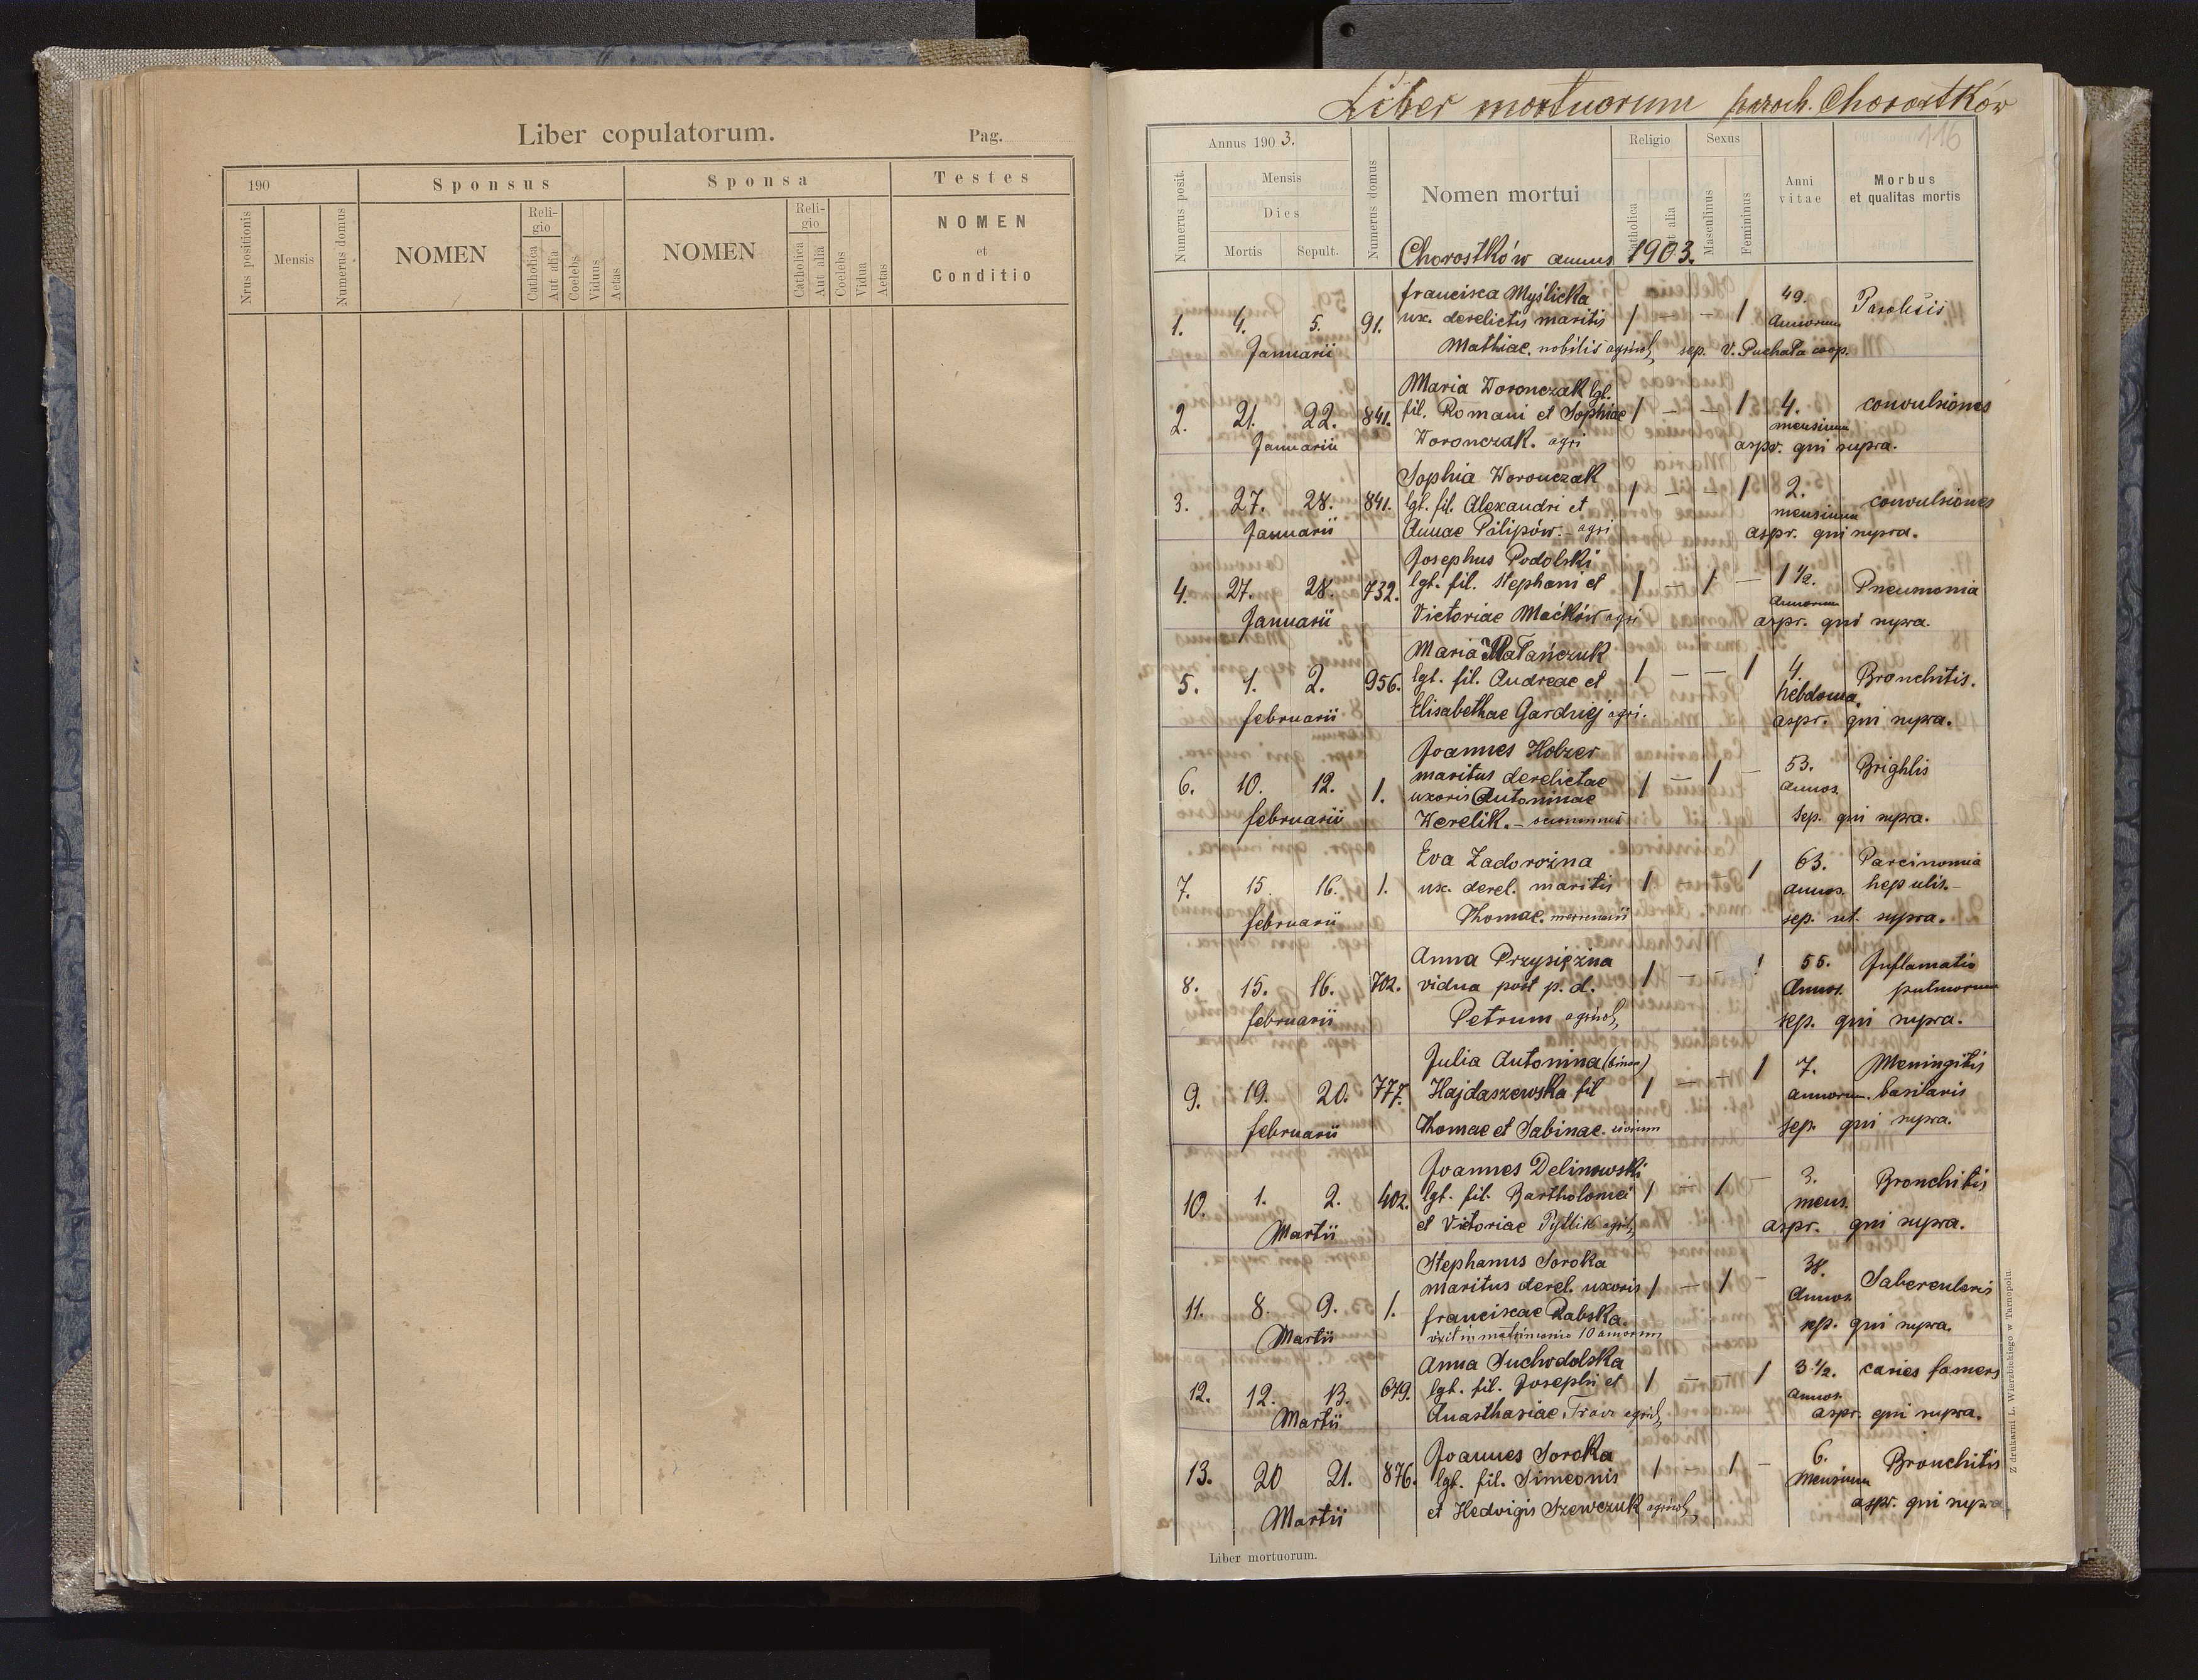 Liber copulatorum.
Pag.
190
Sponsus
Sponsa
Testes
Nrus positionis
Mensis
Numerus domus
NOMEN
Reli-
gio
Catholica
Aut alia
Coelebs
Viduus
Aetas
NOMEN
Reli-
gio
Catholica
Aut alia
Coelebs
Vidua
Aetas
NOMEN
et
Conditio
Liber mortuorum paroch. Chorostków
116
Annus 1903.
Numerus posit.
Mensis
Dies
Mortis
Sepult.
Numerus domus
Nomen mortui
Religio
Catholica
aut alia
Sexus
Masculinus
Femininus
Anni
vitae
Morbus
et qualitas mortis
Chorostków annus 1903.
Francisca Myślicka 49.
1. 4. 5. 91. ux. derelictis maritis / — — / Annorum
Januarii Mathiae. nobilis agricol, sep. V. Puchała coop.
Maria Woronczak lgt.
2. 21. 22. 841. fil. Romani et Sophiae / — — / 4. convulsiones
mensium
Januarii Woronczak. agri aspr. qui supra.
Sophia Woronczak
3. 27. 28. 841. lgt. fil. Alexandri et / — — / 2. convulsiones
mensium
Januarii Annae Pilipów. - agri aspr. qui supra.
Josephus Podolski
4. 27. 28. 732. lgt. fil. Stephani et / — / — 1 1/2. Pneumonia
Annorum
Januarii Victoriae Maćków agri aspr. qui supra.
Maria Matańczuk
5. 1. 2. 956. lgt. fil. Andreae et / — — / 4. Bronchitis.
hebdoma.
Februarii Elisabethae Garduiej agri. aspr. qui supra.
Joannes Holzer
6. 10. 12. 1. maritus derelictae / — / — 53. Brightis
uxoris Antoninae Annos.
Februarii Werelik. — sep. qui supra.
Eva Zadorożna
7. 15. 16. 1. ux. derel. maritis / — / 63. Parcinomia
annos. hepulis.—
Februarii Thomae. mercenarii sep. ut. supra.
Anna Przysiężna
8. 15. 16. 702. vidua post p. d. / — — / 55. Inflamatio
Annos. pulmorum
Februarii Petrum agricol, sep. qui supra.
Julia Antonina (binom)
9. 19. 20. 777. Hajdaszewska fil / — — / 7. Meningitis
annorum. basilaris
Februarii Thomae et Sabinae. civium sep. qui supra.
Joannes Delinowski
10. 1. 2. 402. lgt. fil. Bartholomei / — / — 3. Bronchitis
mens.
Martii et Victoriae Pytlik agril, aspr. qui supra.
Stephanus Soroka
11. 8. 9. 1. maritus derel. uxoris / — / — 38. Sabercularis
Annos.
Martii Franciscae Rabska. sep. qui supra.
vixit in matrimonio 10 annorum
Anna Suchodolska
12. 12. 13. 679. lgt. fil. Josephi et / — — / 3 1/2. caries famers
Annos.
Martii Anasthasiae Tracz agril, aspr. qui supra.
Joannes Soroka
13. 20 21. 876. lgt. fil. Simeonis / — / — 6. Bronchitis
Mensium
Martii et Hedvigis Szewczuk agricol, aspr. qui supra
Liber mortuorum.
Z drukarni L. Wierzbickiego w Tarnopolu.